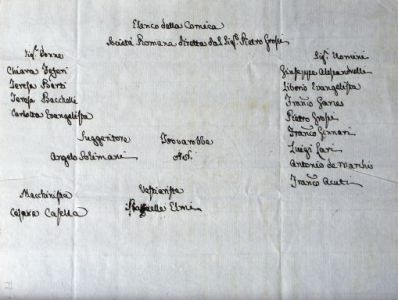 Elenco della Comica
Società Romana diretta dal Sigr. Pietro Grossi
Sigre. Donne
Chiara
Teresa Berti
Teresa Bacchelli
Carlotta Evangelista
Sigri. Uomini
Giuseppe
Liborio Evangelista
Franco Ganes
Pietro Grossi
Franco Gennari
Luigi Lari
Antonio de Marchis
Franco Acuti
Suggeritore
Angelo Polimani
Trovarobbe
Macchinista
Cesare Capella
Vestiarista
Raffaelle Elmi